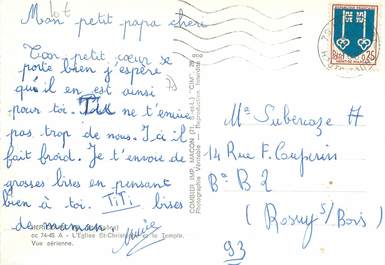 lot
Mon petit papa cheri
Ton petit cœur se
porte bien j'espère
qu'il en est ainsi
pour toi. Tu ne t'ennuie
pas trop de nous. Ici il
fait froid. Je t'envoie de
grosses bises en pensant
bien à toi. TiTi. bises
de maman.
cc 74-45 A - L'Eglise St-Christophe et le Temple.
Vue aérienne.
COMBIER IMP. MACON (71, S.-et-L.) "CIM"
Photographie Véritable - Reproduction interdite
0,25
Mr Suberoze H
14 Rue F. Couperin
Bt B 2
(Rosny s/Bois)
93